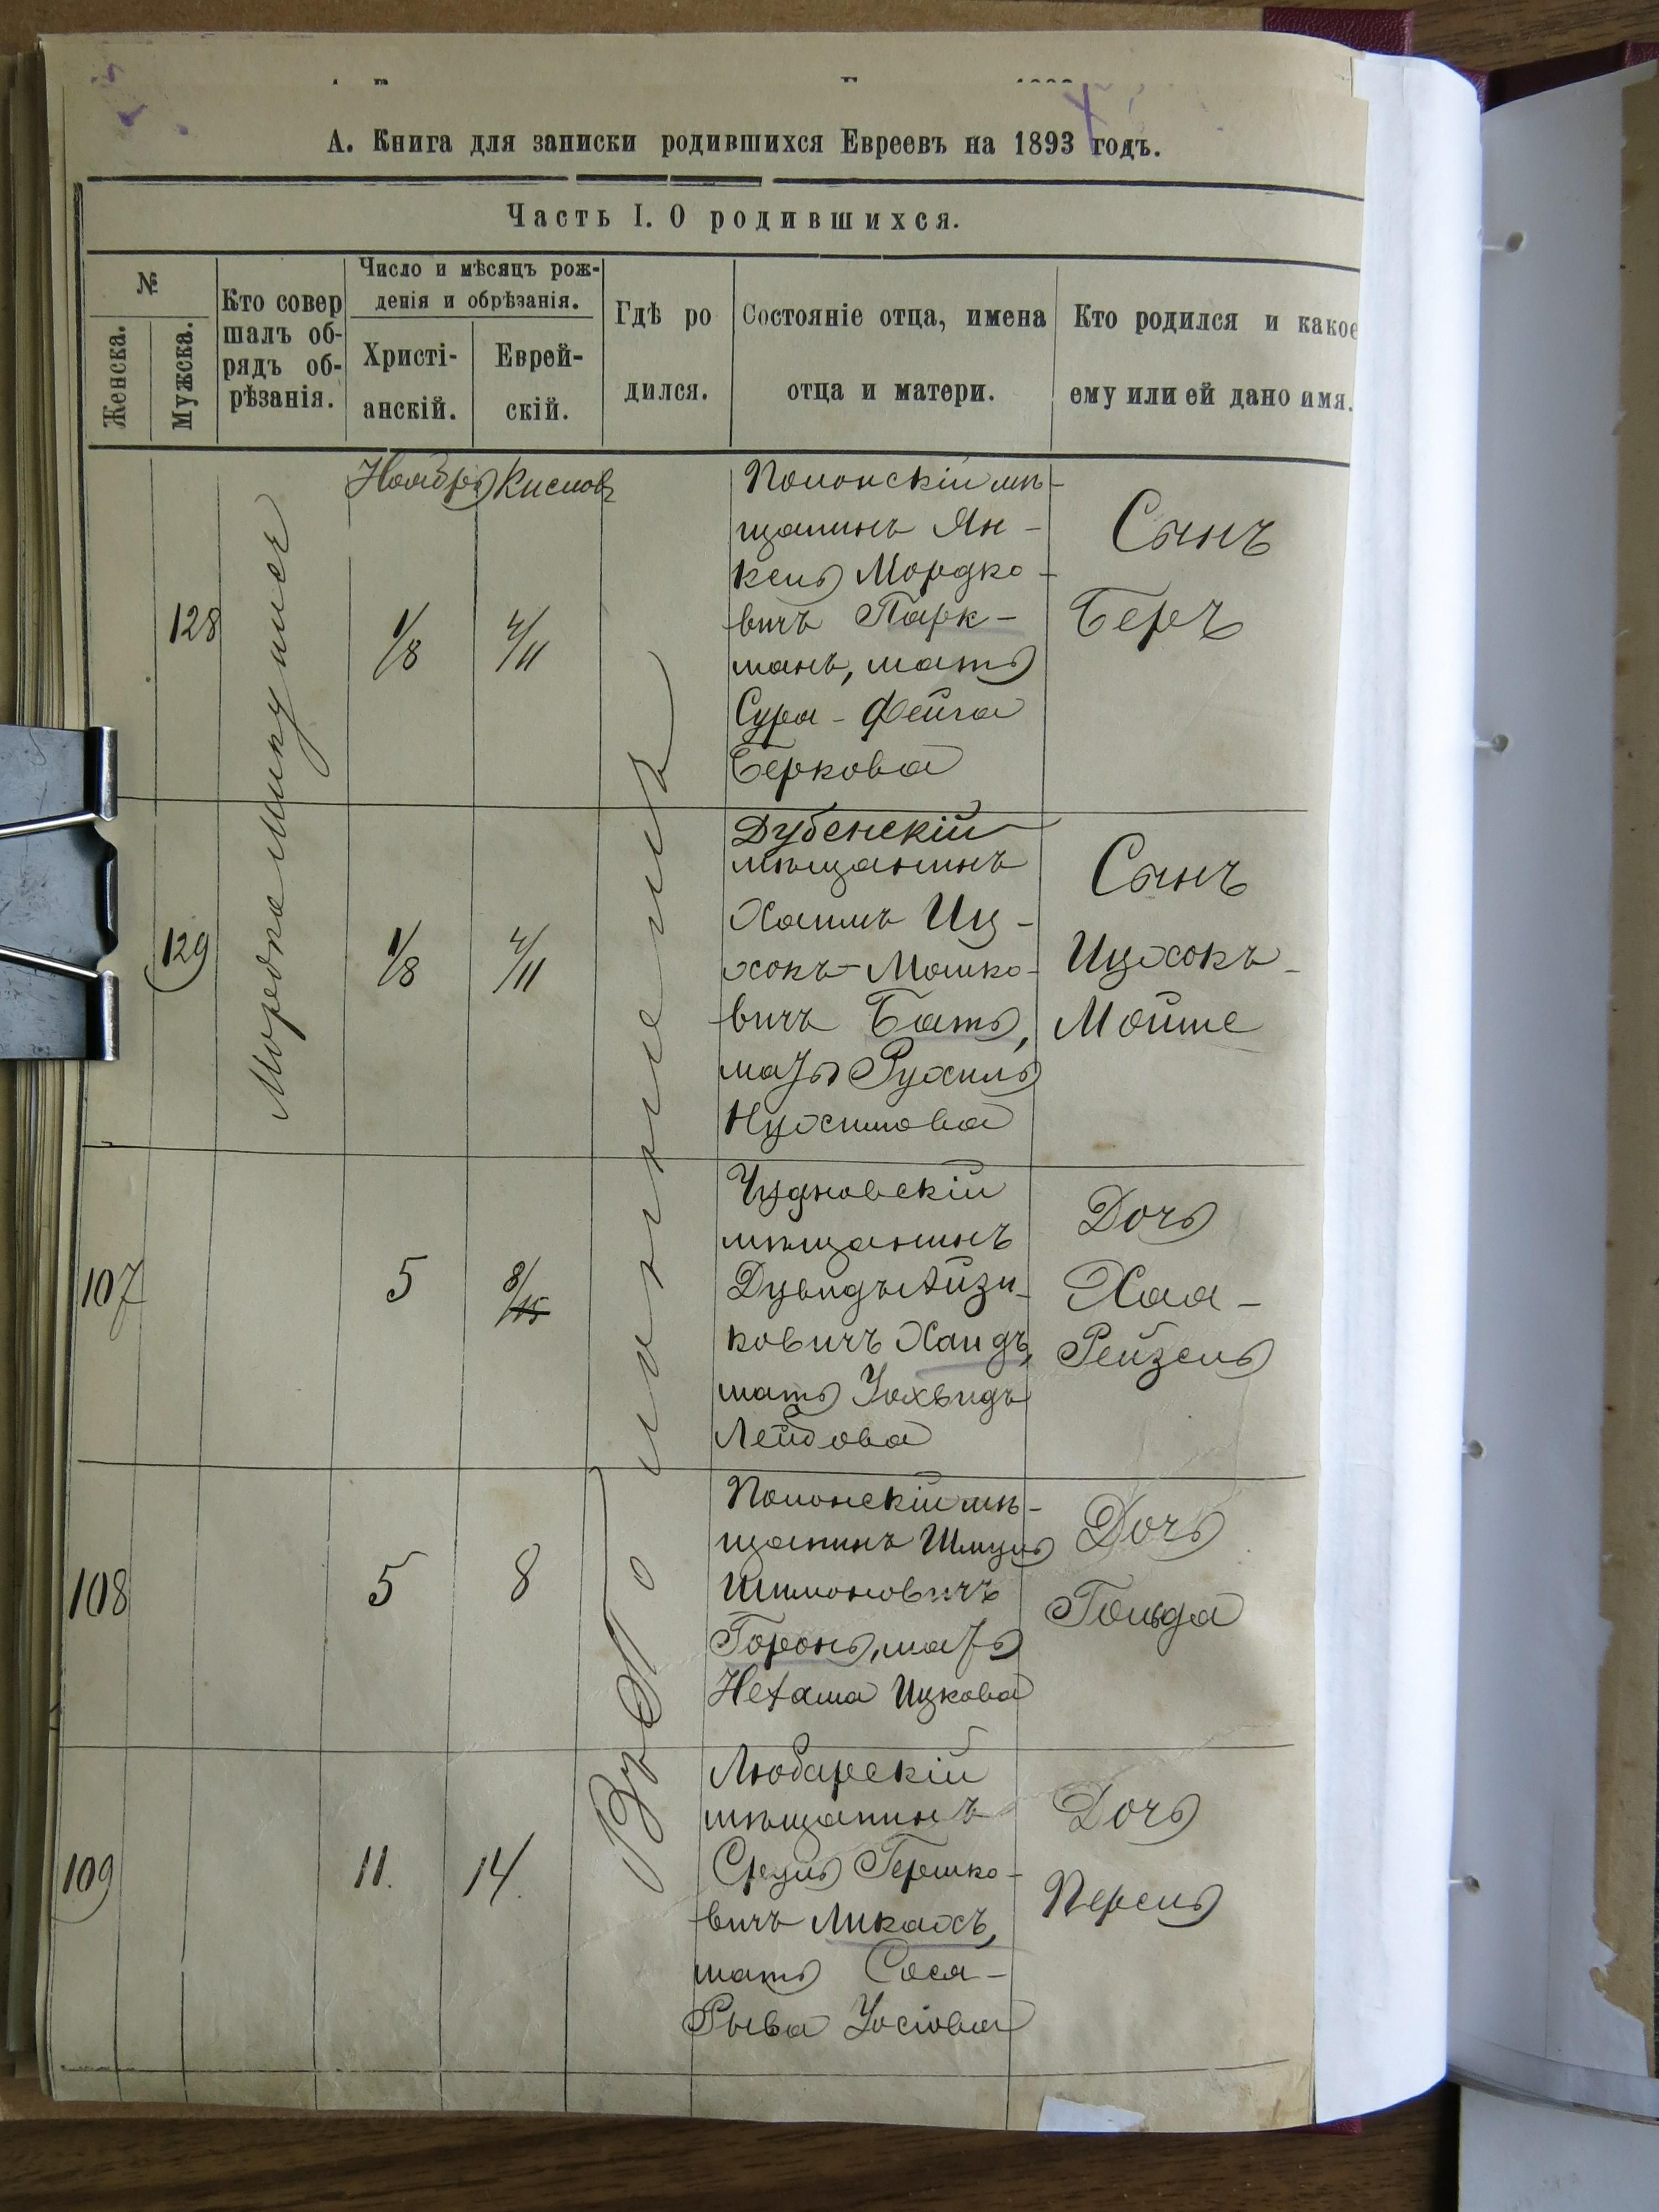 А. Книга для записки родившихся Евреевъ на 1893 годъ.
Часть I. О родившихся.
№
Женска.
Мужска.
Кто совер
шалъ об-
рядъ об-
рѣзанія.
Число и мѣсяцъ рож-
денія и обрѣзанія.
Христі-
анскій.
Еврей-
скій.
Гдѣ ро
дился.
Состояніе отца, имена
отца и матери.
Кто родился и какое
ему или ей дано имя.
Ноябрь
Кислов
Мордко
Въ
128
1/8
4/11
Полонскій мѣ-
щанинъ Ян-
кель Мордко-
вичъ Парк-
манъ, мать
Сура-Фейга
Беркова
Сынъ
Беръ
129
1/8
4/11
Дубенскій
мѣщанинъ
Хаимъ Иц-
хокъ-Мошко-
вичъ Бать,
мать Рухиль
Нухимова
Сынъ
Ицхокъ-
Мойше
107
5
8/15
Чудновскій
мѣщанинъ
Дувидъ Айзи-
ковичъ Хаидъ,
мать Іохвидъ
Лейбова
Дочь
Хая-
Рейзель
108
5
8
Полонскій мѣ-
щанинъ Шмуль
Шимоновичъ
Горонь, мать
Нехама Ицкова
Дочь
Гольда
109
11.
14.
Любарскій
мѣщанинъ
Сруль Гершко-
вичъ Ликахъ,
мать Сося-
Рыва Іосіова
Дочь
Перель